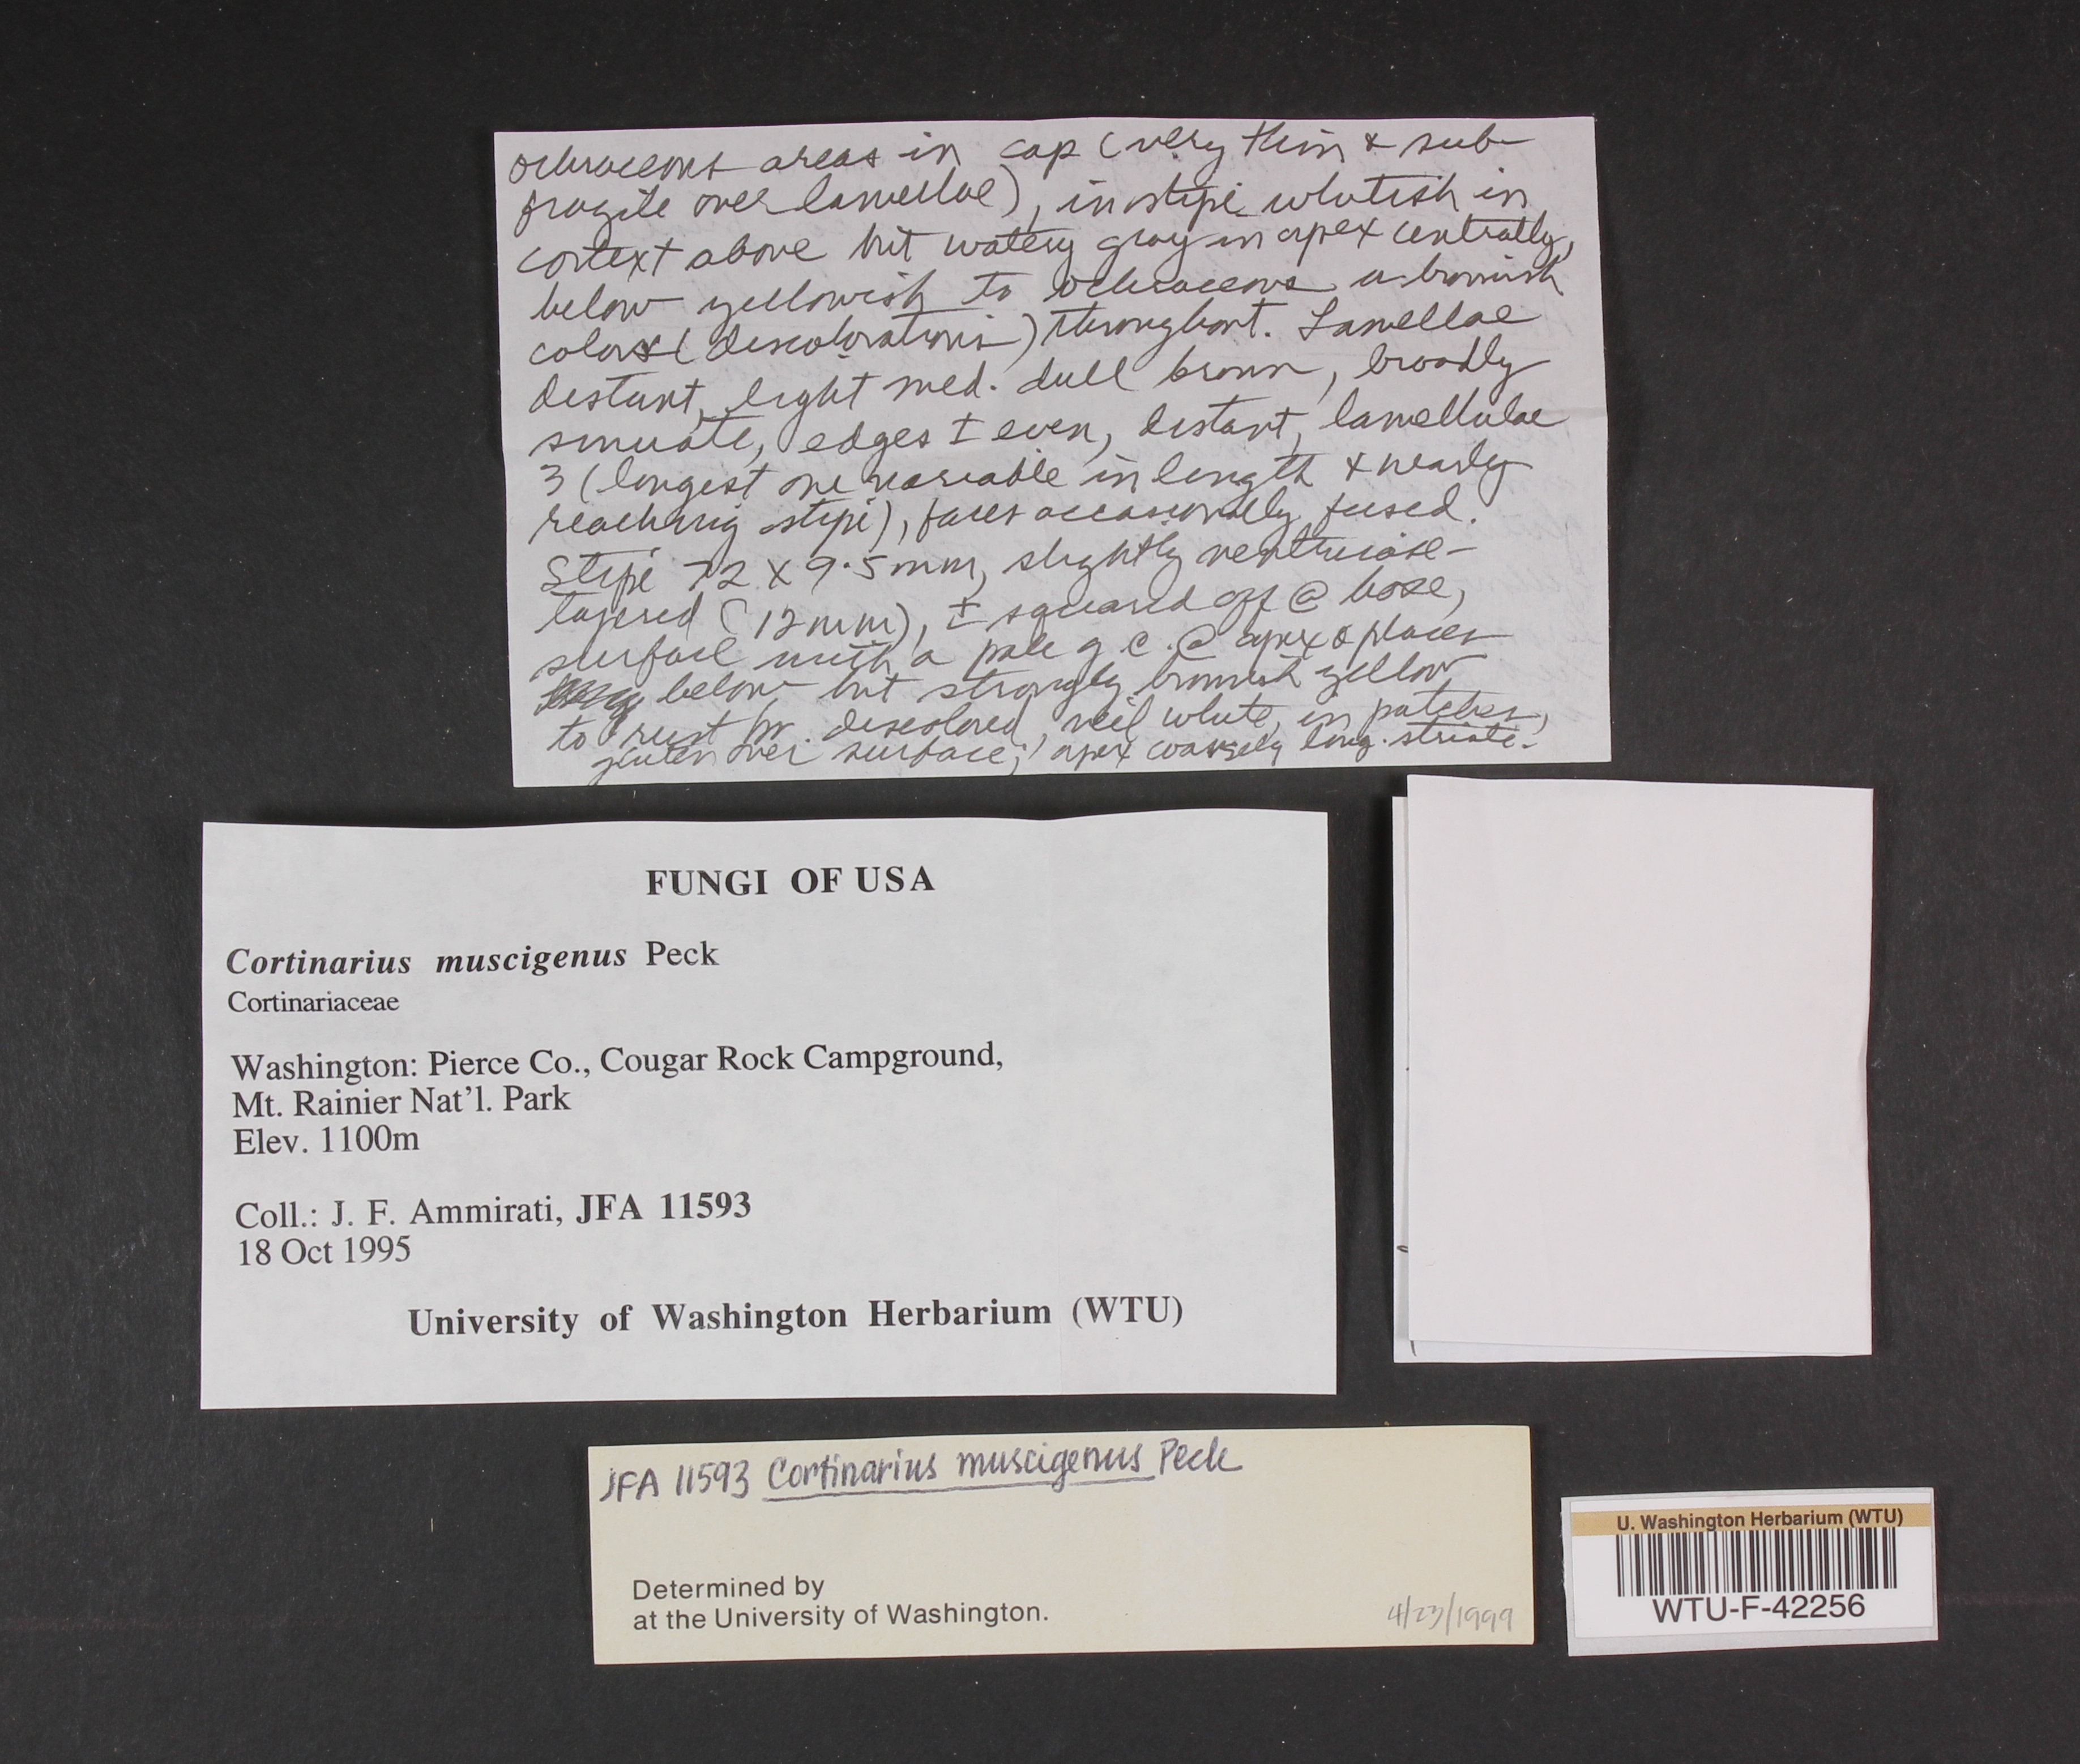 ochraceous areas in cap (very thin & sub-
fragile over lamellae), in stipe whitish in
cortext above but watery gray in apex centrally,
below yellowish to ochraceous a brownish
colors (discolorations) throughout. Lamellae
distant, light med. dull brown, broadly
sinuate, edges ± even, distant, lamellulae
3 (longest one variable in length & nearly
reaching stipe), faces occasionally fused.
Stipe 72 x 9.5 mm, slightly ventricose-
tapered (12 mm), ± squared off @ base,
surface with a pale g.c. @ apex & places
below but strongly brownish yellow
to rust br. discolored, veil white, in patches,
gluten over surface; apex coarsely long. striate.
FUNGI OF USA
Cortinarius muscigenus Peck
Cortinariaceae
Washington: Pierce Co., Cougar Rock Campground,
Mt. Rainier Nat'l. Park
Elev. 1100m
Coll.: J. F. Ammirati, JFA 11593
18 Oct 1995
University of Washington Herbarium (WTU)
JFA 11593 Cortinarius muscigenus Peck
Determined by
at the University of Washington.
4/23/1999
U. Washington Herbarium (WTU)
WTU-F-42256